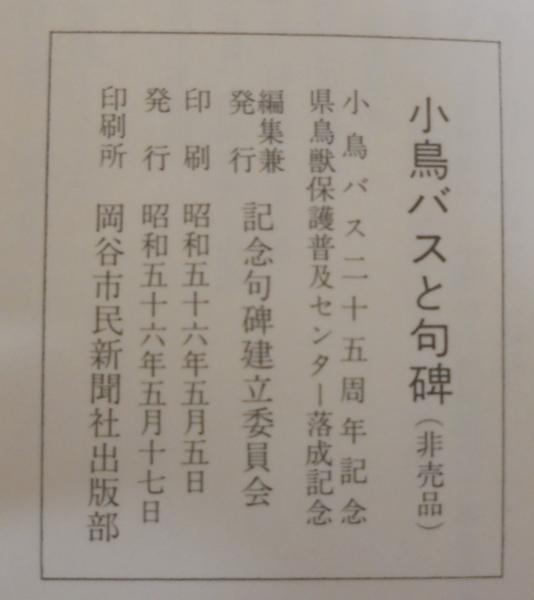 小鳥バスと句碑（非売品）
小鳥バス二十五周年記念
県鳥獣保護普及センター落成記念
編集兼
発行 記念句碑建立委員会
印刷 昭和五十六年五月五日
発行 昭和五十六年五月十七日
印刷所 岡谷市民新聞社出版部